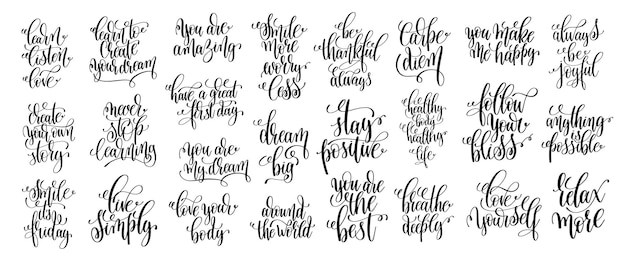 learn
listen
love
learn to
create
your dream
you are
amazing
smile
more
worry
less
be
thankful
always
carpe
diem
you make
me happy
always
be
joyful
create
your own
story
never
stop
learning
have a great
first day
you are
my dream
dream
big
stay
positive
healthy
body
healthy
life
follow
your
bliss
anything
is
possible
smile
it's
friday
live
simply
love your
body
around
the world
you are
the
best
breathe
deeply
love
yourself
relax
more